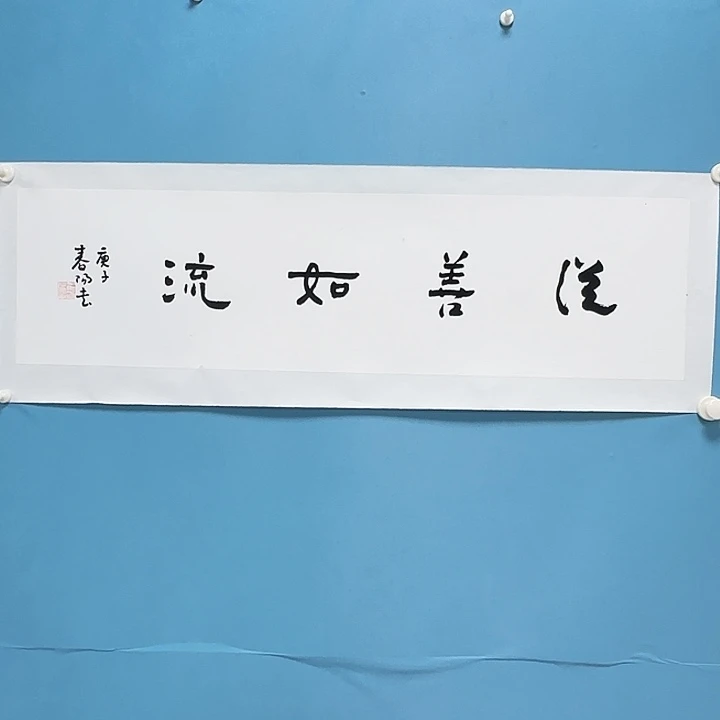 從善如流
庚子
春陽書